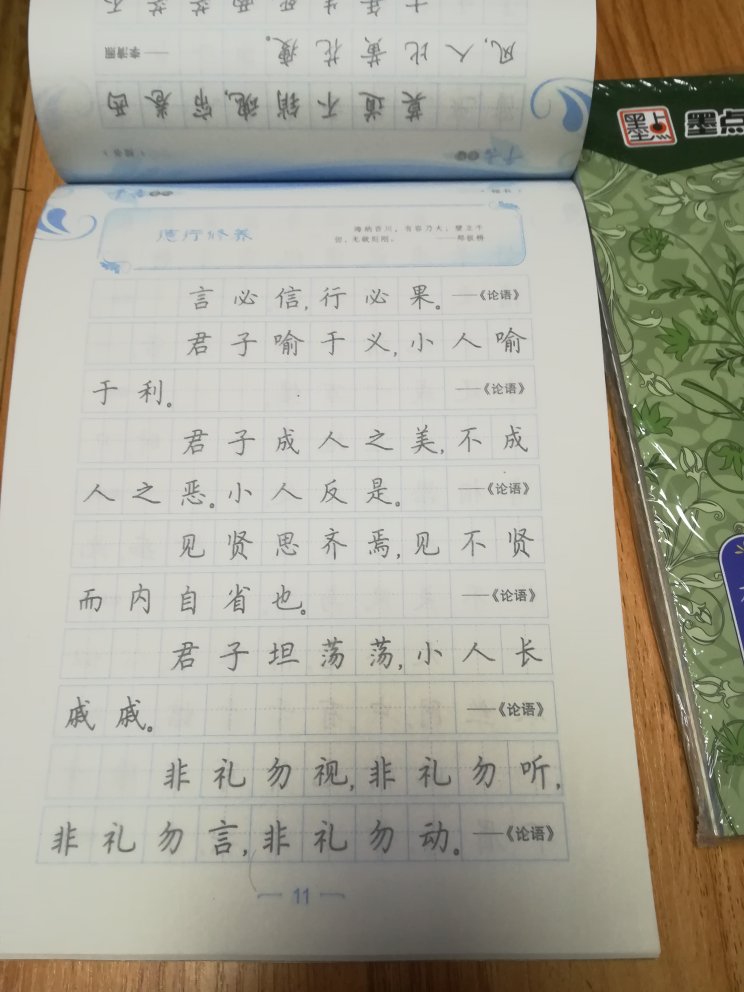 莫道不销魂,帘卷西
风,人比黄花瘦。 ——李清照
十年生死两茫茫,不
德行修养
海纳百川，有容乃大；壁立千
仞，无欲则刚。 ——郑板桥
言必信,行必果。 ——《论语》
君子喻于义,小人喻
于利。 ——《论语》
君子成人之美,不成
人之恶。小人反是。 ——《论语》
见贤思齐焉,见不贤
而内自省也。 ——《论语》
君子坦荡荡,小人长
戚戚。 ——《论语》
非礼勿视,非礼勿听,
非礼勿言,非礼勿动。 ——《论语》
11
墨点 墨点